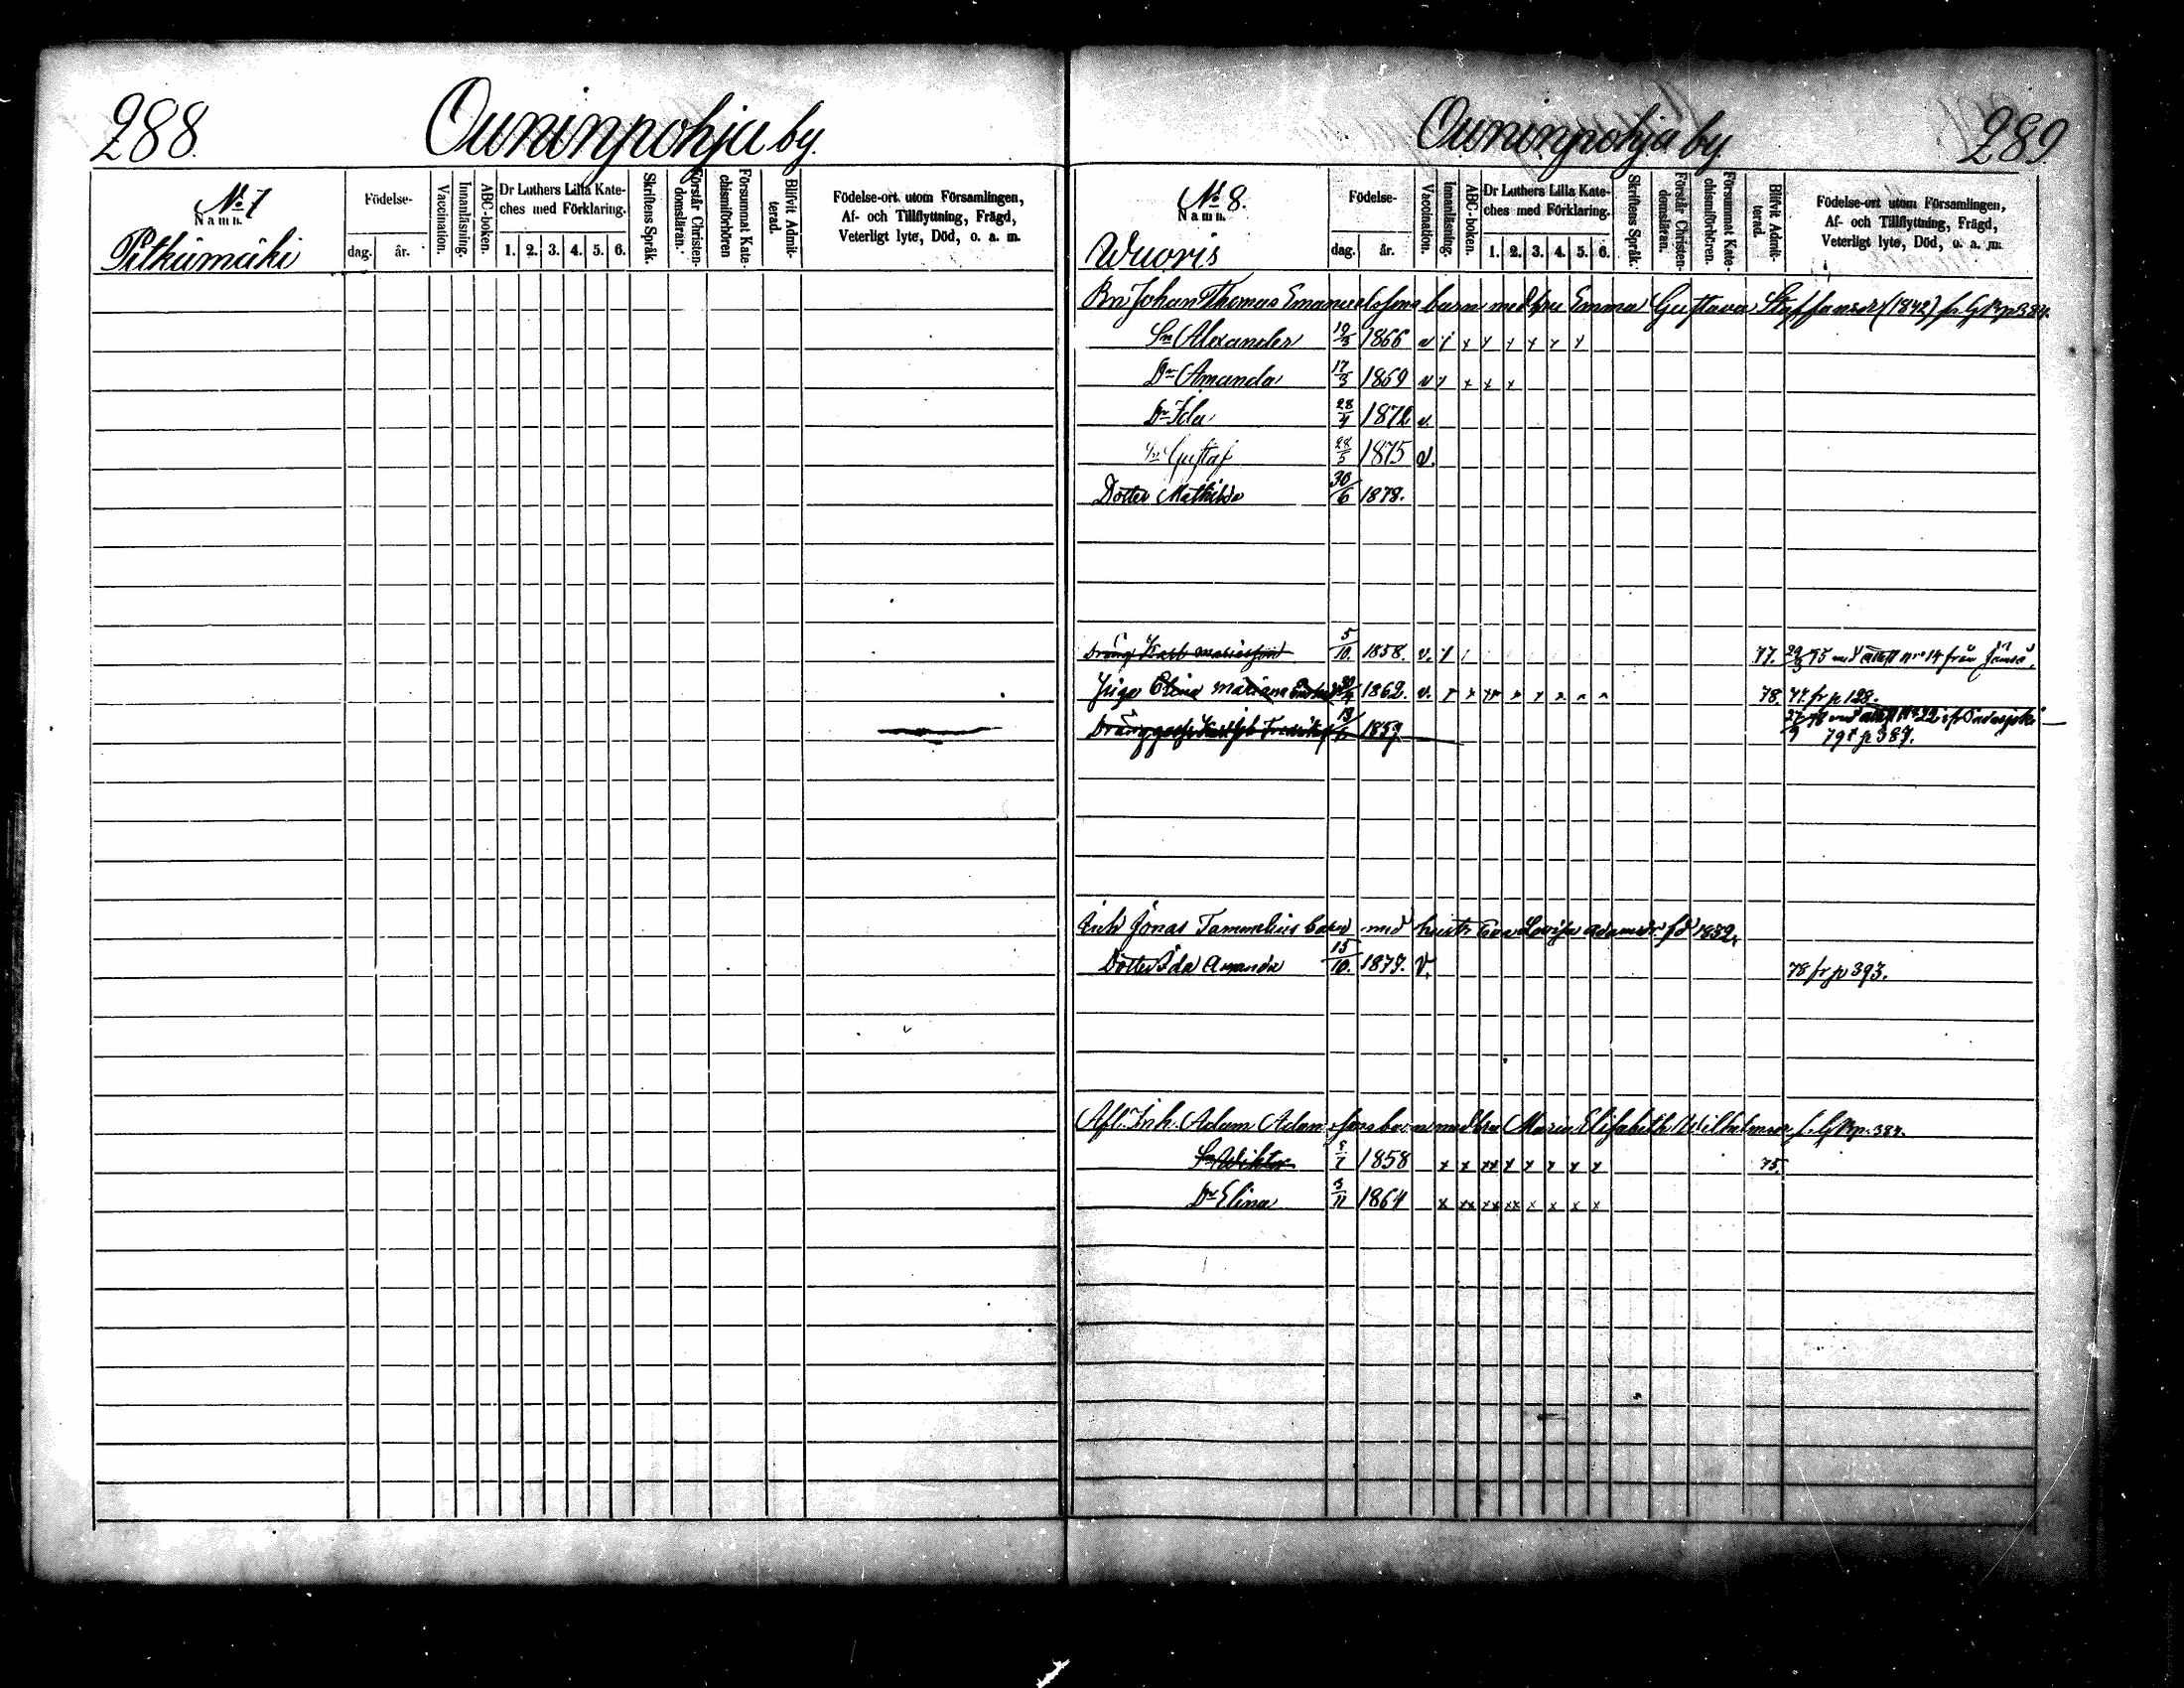 288. Ouninpohja by.
No 7
Namn.
Pitkämäki
Födelse-
dag. år.
Vaccination.
Innanläsning.
ABC-boken.
Dr Luthers Lilla Kate-
ches med Förklaring.
1. 2. 3. 4. 5. 6.
Skriftens Språk.
Förstår Christen-
domsläran.
Försummat Kate-
chismiförhören
Blifvit Admit-
terad.
Födelse-ort utom Församlingen,
Af- och Tillflyttning, Frägd,
Veterligt lyte, Död, o. a. m.
Ouninpohja by. 289.
No 8.
Namn.
Wuoris
Födelse-
dag. år.
Vaccination.
Innanläsning.
ABC-boken.
Dr Luthers Lilla Kate-
ches med Förklaring.
1. 2. 3. 4. 5. 6.
Skriftens Språk.
Förstår Christen-
domsläran.
Försummat Kate-
chismiförhören.
Blifvit Admit-
terad.
Födelse-ort utom Församlingen,
Af- och Tillflyttning, Frägd,
Veterligt lyte, Död, o. a. m.
Bn Johan Thomas Emanuelssons barn med hru Emma Gustava Staffansdr (1842) fr. G Bp 384.
Sn Alexander 1866 v x x x x x x x
Dr Amanda 17/3 1869 v x x x x
Dr Ida 28/4 1872 v.
Sn Gustaf 28/5 1875 v.
Dotter Mathilda 30/6 1878.
Dräng Karl 5/10. 1858. v. 77. 29/3 75 med attest nro 14 från Jämsä.
Piga Elina Mariana 1862. v. 78. 77. fr p 128.
Dränggosse 1859. 79 t p 387.
Inh Jonas Tammelius barn med hustr Eva Lovisa Adamsdr fd 1832.
Dotter Ida Amanda 15/10. 1877. v. 78 fr p 393.
Afl. Inh. Adam Adamssons barn med hru Maria Elisabeth Wilhelmsdr f. G Bp. 384.
Sn Wiktor 1858 x x xx x x x x x 75.
Dr Elina 3/11 1864 x xx xx xx x x x x